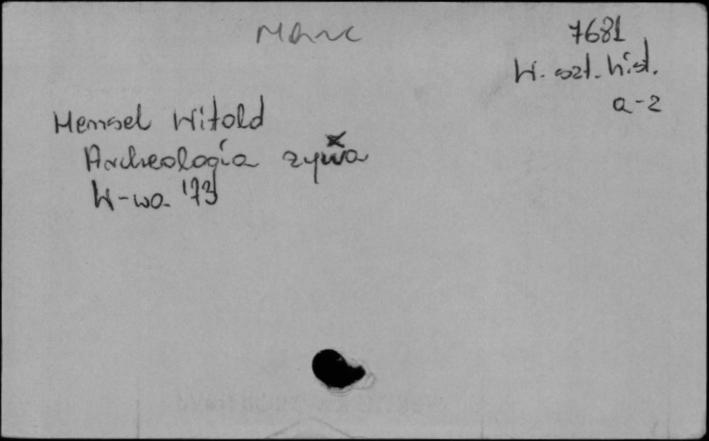 7681
W. szt. hist.
a-z
Hensel Witold
Archeologia zywa
W-wa '73